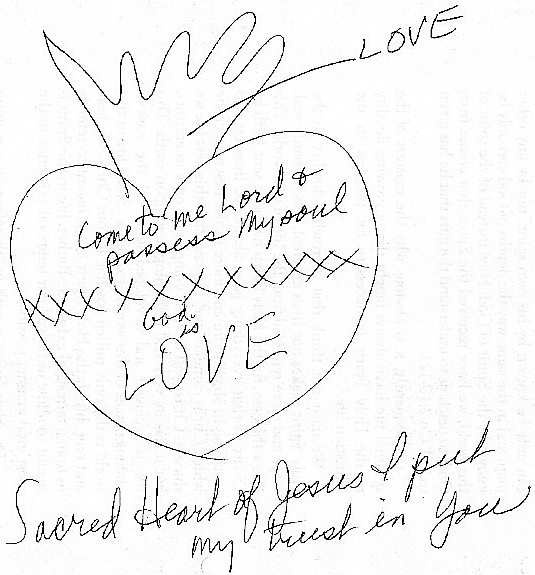 LOVE
Come to me Lord &
possess My soul
XXXXXXXXXXX
God
is
LOVE
Sacred Heart of Jesus I put
my trust in You